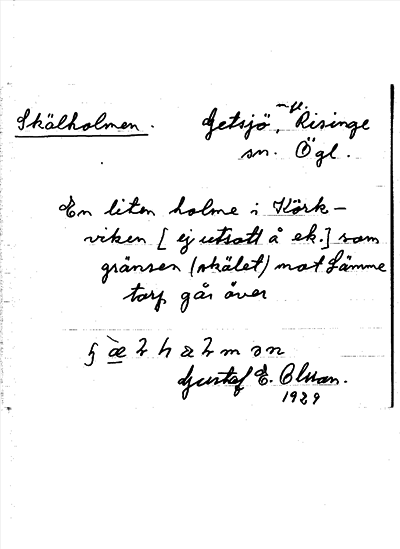 Skälholmen. Getsjö, Risinge
sn. Ögl.
En liten holme i Körk-
viken [ej utsatt å ek.] som
gränsen (skälet) mot Lämme
torp går över
Gustaf E. Olsson.
1929